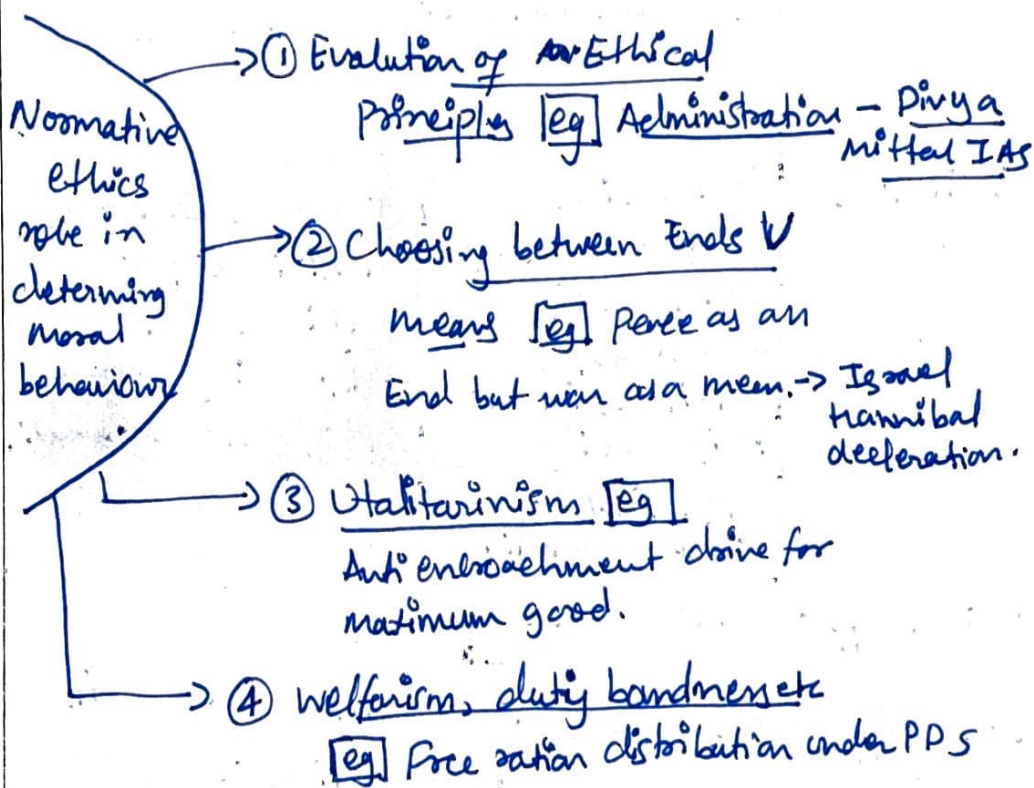 Normative
ethics
role in
determing
moral
behaviour
→ ① Evalution of Ethical
Principles eg Administration - Divya
Mittal IAS
→ ② Choosing between Ends V
means eg peace as an
End but war as a mean. → Israel
Hannibal
decleration.
→ ③ Utalitarinism eg
Anti encroachment drive for
maximum good.
→ ④ welfarism, duty bandness etc
eg Free ration distribution under PDS